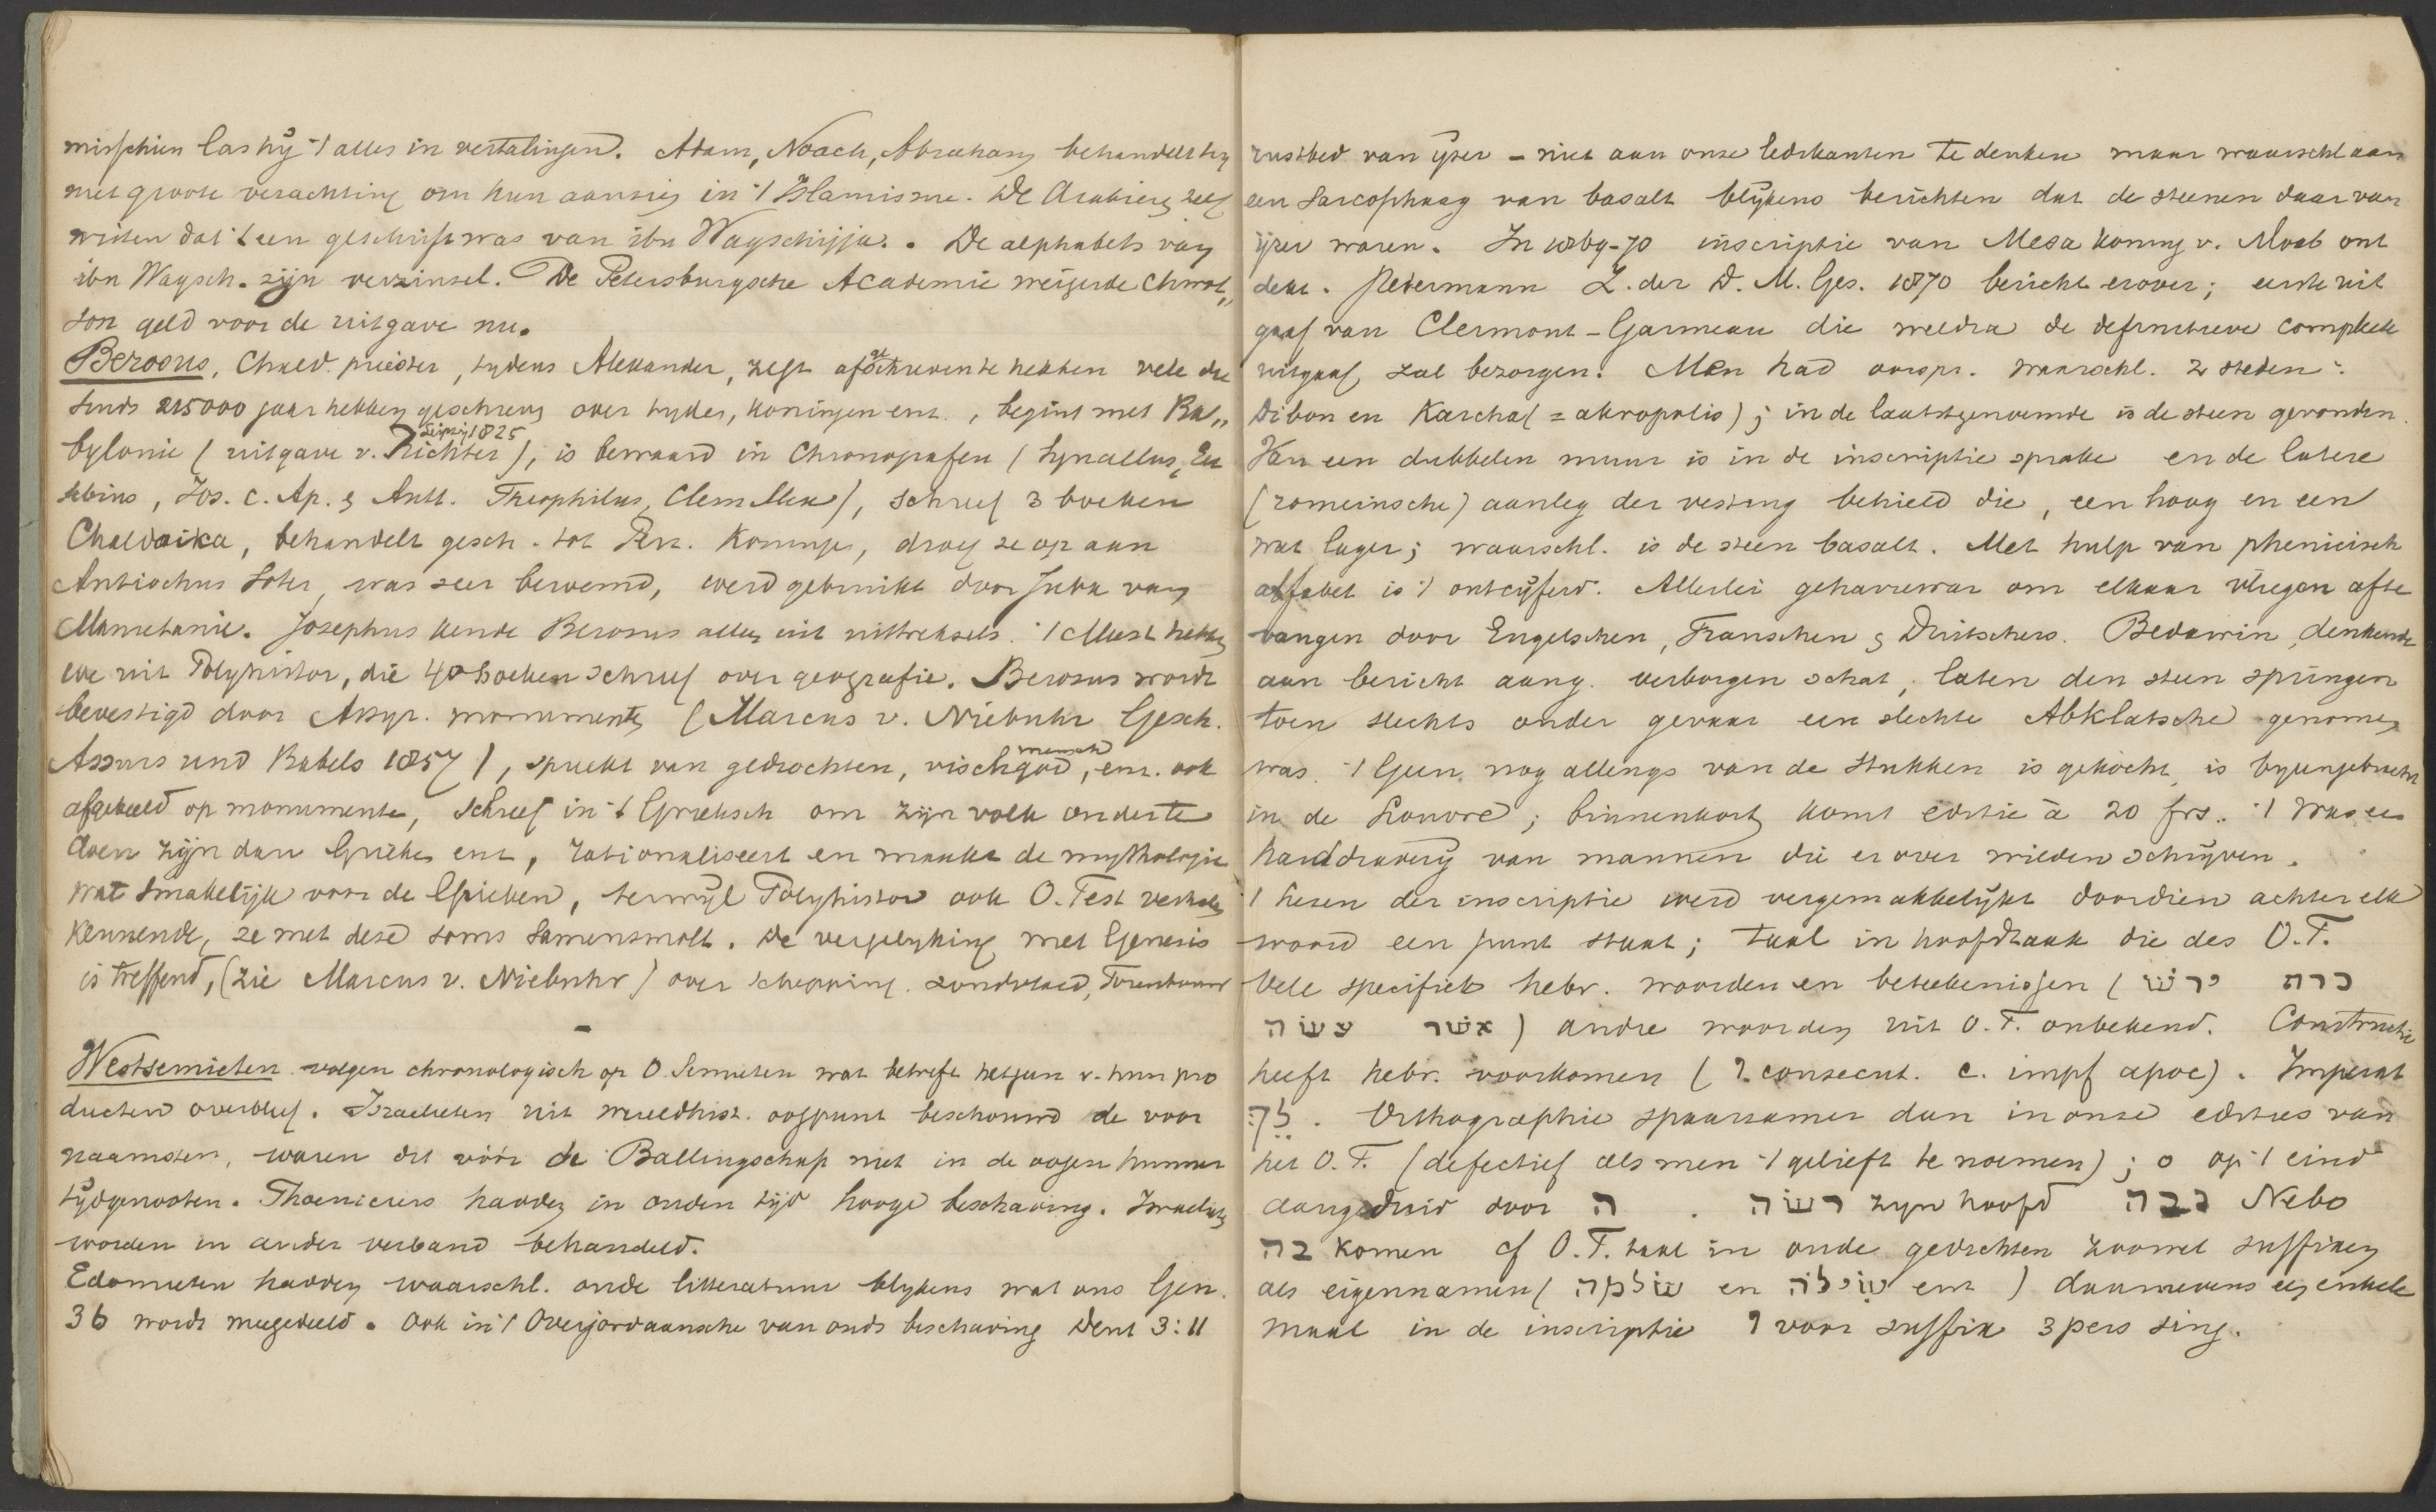 misschien las hij 't alles in vertalingen. Adam, Noach, Abraham behandelt hij
met groote verachting om hun aanzien in 't Islamisme. De Arabieren zelf
wisten dat 't een geschrift was van ibn Wagschijja. De alphabets van
ibn Wagsch. zijn verzinsel. De Petersburgsche Academie weigerde Chwol„
son geld voor de uitgave nu.
Berosus, Chald. priester, tijdens Alexander, zegt afschreven te hebben vele die
sinds 215000 jaar hebben geschreven over tijden, koningen enz., begint met Ba„
bylonie (uitgave v. Richter Leipzig 1825), is bewaard in Chronografen (Syncellus, Eu
sebius, Jos. c. Ap. & Antt. Theophilus, Clem Alex), schreef 3 boeken
Chaldaika, behandelt gesch. tot Perz. Koningen, droeg ze op aan
Antiochus Soter, was zeer beroemd, werd gebruikt door Juba van
Mauretanie. Josephus kende Berosus alleen uit uittreksels. 't Meest hebben
we uit Polyhistor, die 40 boeken schreef over geografie. Berosus wordt
bevestigd door Assyr. monumenten (Marcus v. Niebuhr Gesch.
Assurs und Babels 1857), spreekt van gedrochten, vischgod, mensch enz. ook
afgebeeld op monumenten, schreef in 't Grieksch om zijn volk ouder te
doen zijn dan Grieken enz, rationaliseert en maakt de mythologie
wat smakelijk voor de Grieken, terwijl Polyhistor ook O. Test verhalen
kennende, ze met deze soms samensmolt. De vergelijking met Genesis
is treffend, (zie Marcus v. Niebuhr) over schepping, zondvloed, Torenbouw
Westsemieten volgen chronologisch op O. Semieten wat betreft hetgeen v. hun pro
ducten overbleef. Israelieten uit wereldhist. oogpunt beschouwd de voor
naamsten, waren dit vóór de Ballingschap niet in de oogen hunner
tijdgenooten. Phoeniciers hadden in ouden tijd hooge beschaving. Israelieten
worden in ander verband behandeld.
Edomieten hadden waarschl. oude litteratuur blijkens wat ons Gen.
36 wordt meegedeeld. Ook in 't Overjordaansche van ouds beschaving Deut 3:11
rustbed van ijzer – niet aan onze ledikanten te denken maar waarschl aan
een sarcophaag van basalt blijkens berichten dat de steenen daar van
ijzer waren. In 1869-70 inscriptie van Mesa koning v. Moab ont
dekt. Petermann Z. der D. M. Ges. 1870 bericht erover; eerste uit
gaaf van Clermont-Ganneau die weldra de definitieve compleete
uitgaaf zal bezorgen. Men had oorspr. waarschl. 2 steden:
Dibon en Karcha (= akropolis); in de laatstgenoemde is de steen gevonden.
Van een dubbelen muur is in de inscriptie sprake en de latere
(romeinsche) aanleg der vesting behield die, een hoog en een
wat lager; waarschl. is de steen basalt. Met hulp van phenicisch
alfabet is 't ontcijferd. Allerlei geharrewar om elkaar vliegen af te
vangen door Engelschen, Franschen & Duitschers. Bedawin, denkende
aan bericht aang. verborgen schat, laten den steen springen
toen slechts onder gevaar een slechte Abklatsche genomen
was. 't Geen nog allengs van de stukken is gekocht is bijeengebracht
in de Louvre; binnenkort komt editie à 20 frs. 't Was een
harddraverij van mannen die er over wilden schrijven.
't Lezen der inscriptie werd vergemakkelijkt doordien achter elk
woord een punt staat; taal in hoofdzaak die des O.T.
Vele specifiek hebr. woorden en beteekenissen (ירש כרה
עשה אשר) andre woorden uit O.T. onbekend. Constructie
heeft hebr. voorkomen (ו consecut. c. impf apoc). Imperat
לך. Orthographie spaarzamer dan in onze edities van
het O.T. (defectief als men 't gelieft te noemen); o op 't eind
aangeduid door ה. רשה zijn hoofd נבה Nebo
בה komen cf O.T. taal in oude gedichten zoowel suffixen
als eigennamen (שלמה en שילה enz) daarnevens een enkele
maal in de inscriptie ו voor suffix 3 pers sing.